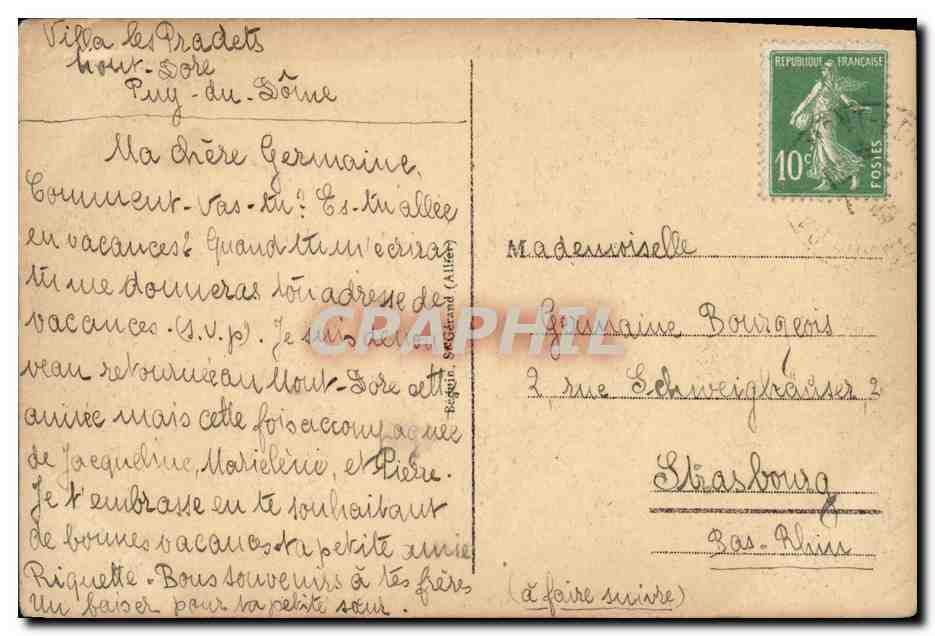 Villa les Pradets
Mont-Dore
Puy-du-Dôme
Ma chère Germaine,
Comment-vas-tu? Es-tu allée
en vacances? Quand tu m'écriras
tu me donneras ton adresse de
vacances (s.v.p). Je suis de nou
veau retournée au Mont-Dore cette
année mais cette fois accompagnée
de Jacqueline, Marielène, et Pierre.
Je t'embrasse en te souhaitant
de bonnes vacances. ta petite amie
Riquette. Bons souvenirs à tes frères
Un baiser pour ta petite sœur.
Béguin, St-Gérand (Allier)
REPUBLIQUE FRANÇAISE
10c
POSTES
Mademoiselle
Germaine Bourgeois
2, rue Schweighäuser, 2
Strasbourg
Bas-Rhin
(à faire suivre)
CPARAPHIL